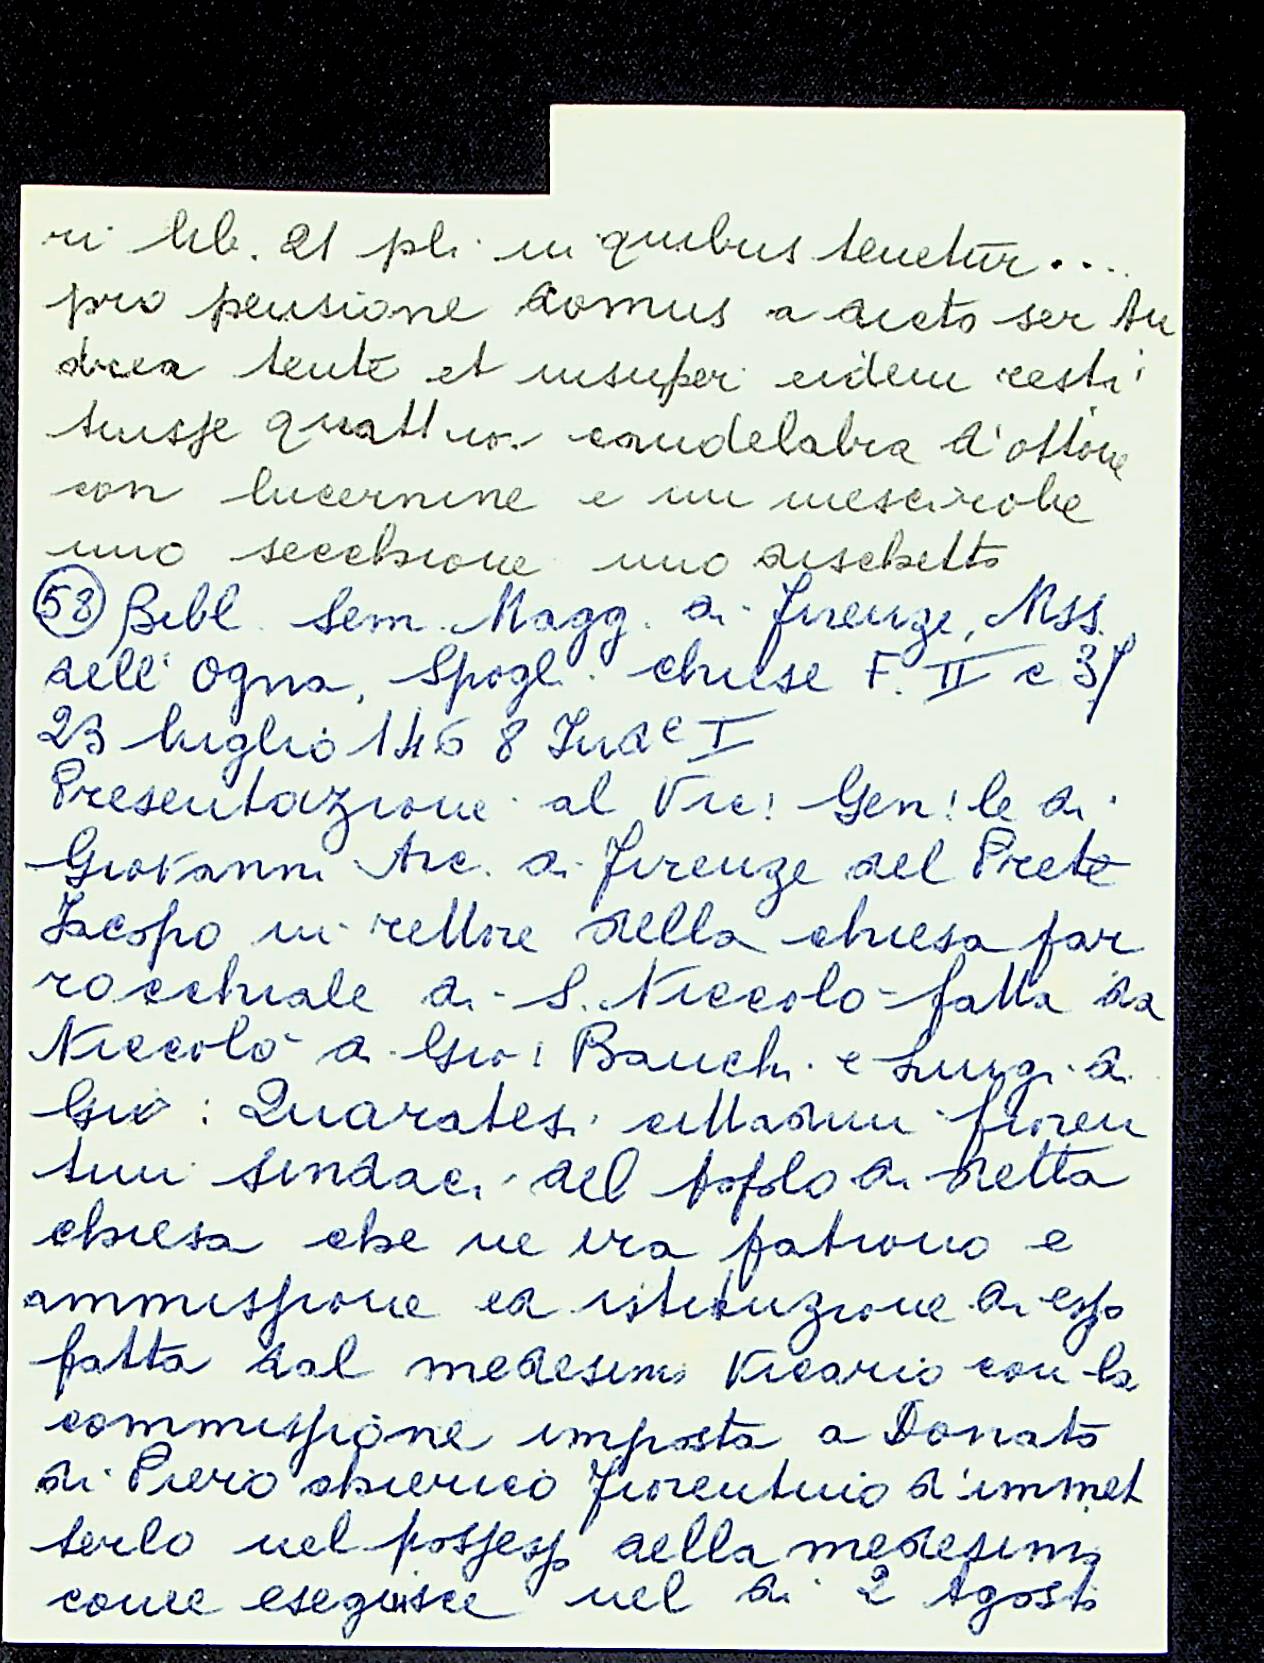 ri lib. 21 pli in quibus tenetur....
pro pensione domus a dicto ser An
drea tente et insuper eidem resti
tuisse quattuor candelabra d'ottone
con lucernine e un mescirobe
uno secchione uno deschetto
(58) Bibl. Sem. Magg. di Firenze, Mss.
dell'Ogna, Spogl. chiese F. II c 37
23 luglio 1468 Indc I
Presentazione al Vic: Gen:le di
Giovanni Arc. di Firenze del Prete
Jacopo in rettore della chiesa par
rocchiale di S. Niccolò fatta da
Niccolò di Gio: Banchi e Luigi di
Gio: Quaratesi cittadini fioren
tini sindaci del popolo di detta
chiesa che ne era patrono e
ammissione ed istituzione di esso
fatta dal medesimo Vicario con la
commissione imposta a Donato
di Piero chierico Fiorentino d'immet
terlo nel possesso della medesima
come eseguisce nel di 2 Agosto